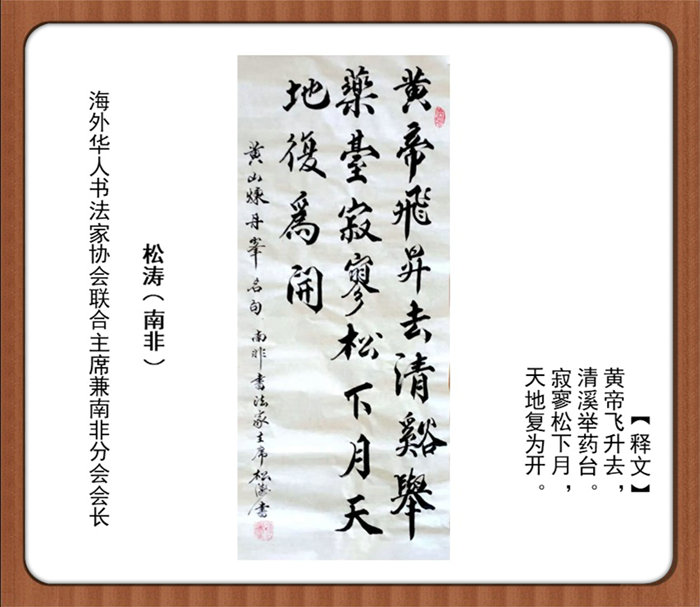 【释文】
黄帝飞升去，
清溪举药台。
寂寥松下月，
天地复为开。
黄帝飛昇去清谿舉
藥臺寂寥松下月天
地復為開
黄山煉丹峯名句 南非書法家主席松濤書
松涛（南非）
海外华人书法家协会联合主席兼南非分会会长